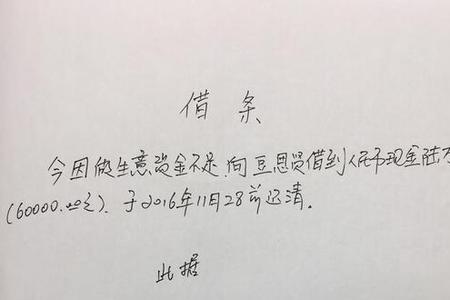 借条
今因做生意资金不足向豆思贤借到人民币现金陆万
(60000.00元).于2016年11月28前还清.
此据